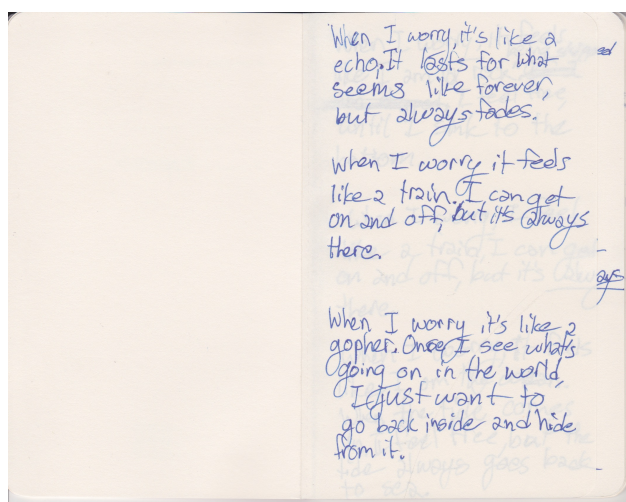 When I worry, it's like a
echo. It lasts for what
seems like forever,
but always fades.
When I worry it feels
like a train. I can get
on and off, but it's always
there.
When I worry it's like a
gopher. Once I see what's
going on in the world,
I just want to
go back inside and hide
from it.